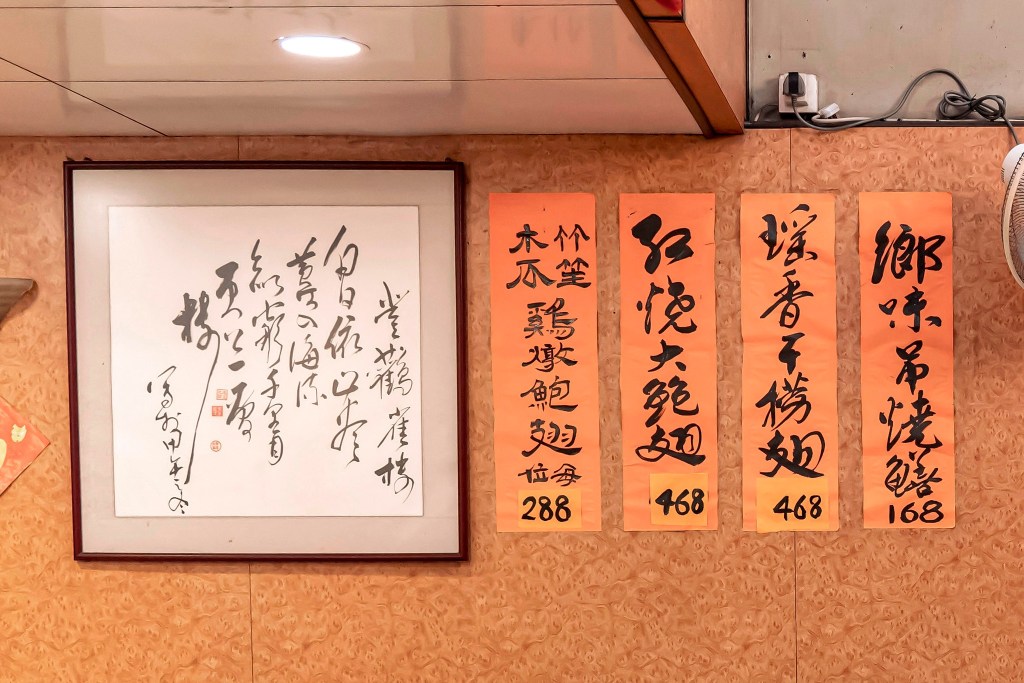 鄉味吊燒鱔
168
瑶香干捞翅
468
红烧大鲍翅
468
竹笙
木瓜
鷄燉鮑翅
每位
288
登鸛雀樓
白日依山盡
黄河入海流
欲窮千里目
更上一層
樓